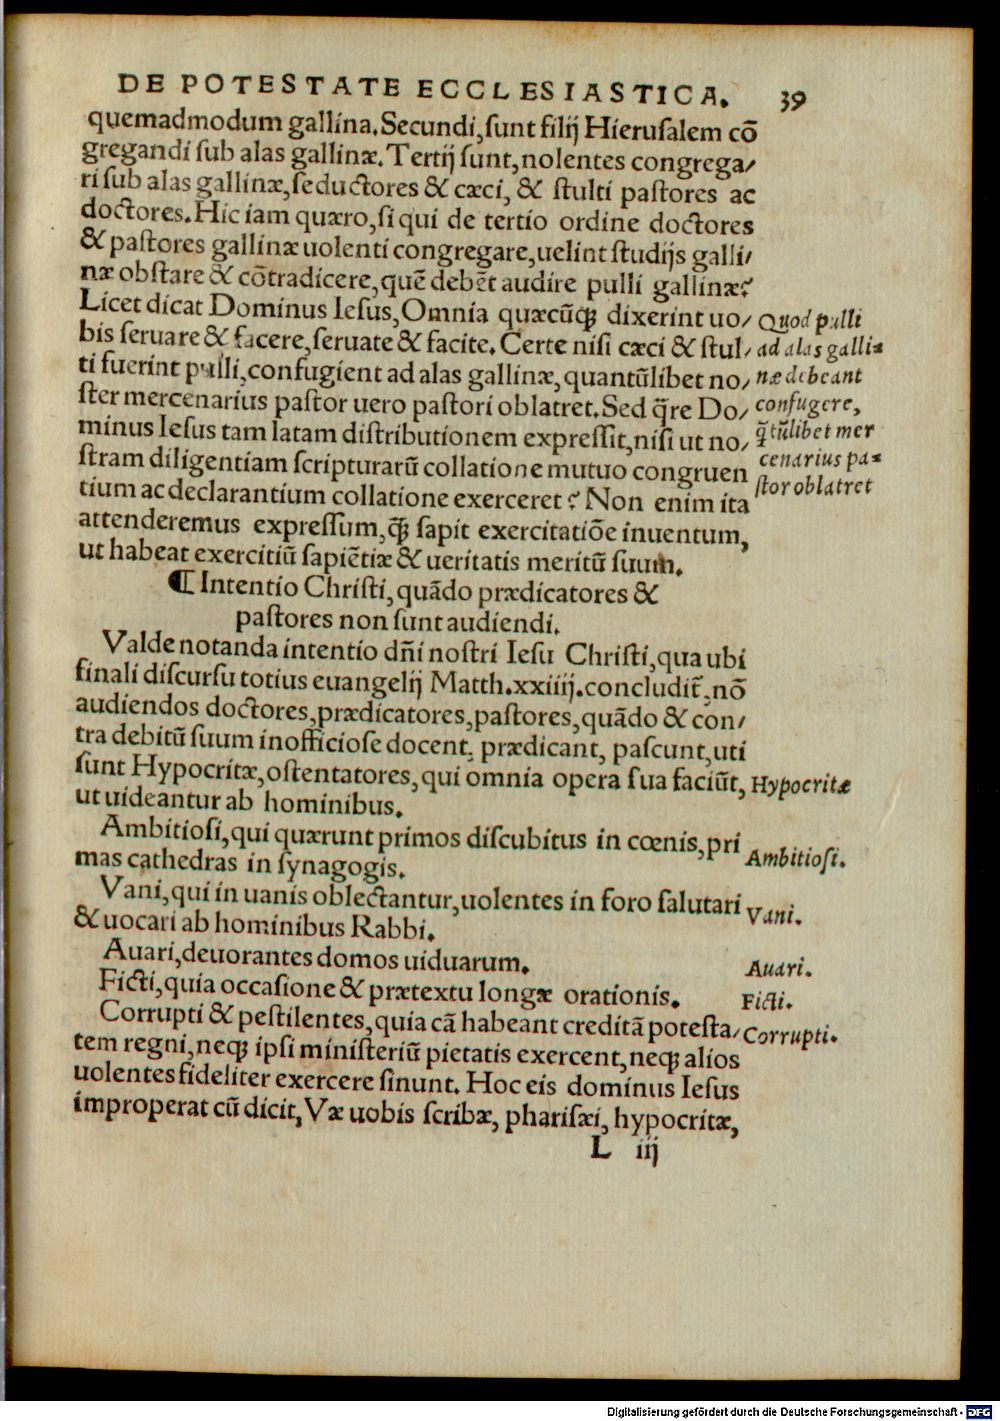 DE POTESTATE ECCLESIASTICA. 39
quemadmodum gallina. Secundi, sunt filij Hierusalem cō
gregandi sub alas gallinæ. Tertij sunt, nolentes congrega/
ri sub alas gallinæ, seductores & cæci, & stulti pastores ac
doctores. Hic iam quæro, si qui de tertio ordine doctores
& pastores gallinæ uolenti congregare, uelint studijs galli/
næ obstare & cōtradicere, quē debēt audire pulli gallinæ?
Licet dicat Dominus Iesus, Omnia quæcūq; dixerint uo/
bis seruare & facere, seruate & facite. Certe nisi cæci & stul/
ti fuerint pulli, confugient ad alas gallinæ, quantūlibet no/
ster mercenarius pastor uero pastori oblatret. Sed q̄re Do/
minus Iesus tam latam distributionem expressit, nisi ut no/
stram diligentiam scripturarū collatione mutuo congruen
tium ac declarantium collatione exerceret? Non enim ita
attenderemus expressum, q̄; sapit exercitatiōe inuentum,
ut habeat exercitiū sapiētiæ & ueritatis meritū suum.
Quod pulli
ad alas galli=
næ debeant
confugere,
q̄tūlibet mer
cenarius pa=
stor oblatret
¶ Intentio Christi, quādo prædicatores &
pastores non sunt audiendi.
Valde notanda intentio dñi nostri Iesu Christi, qua ubi
finali discursu totius euangelij Matth. xxiiij. concludit̄, nō
audiendos doctores, prædicatores, pastores, quādo & con/
tra debitū suum inofficiose docent, prædicant, pascunt, uti
sunt Hypocritæ, ostentatores, qui omnia opera sua faciūt,
ut uideantur ab hominibus.
Hypocritæ
Ambitiosi, qui quærunt primos discubitus in cœnis, pri
mas cathedras in synagogis.
Ambitiosi.
Vani, qui in uanis oblectantur, uolentes in foro salutari
& uocari ab hominibus Rabbi.
Vani.
Auari, deuorantes domos uiduarum.
Auari.
Ficti, quia occasione & prætextu longæ orationis.
Ficti.
Corrupti & pestilentes, quia cā habeant creditā potesta/
tem regni, neq; ipsi ministeriū pietatis exercent, neq; alios
uolentes fideliter exercere sinunt. Hoc eis dominus Iesus
improperat cū dicit, Væ uobis scribæ, pharisæi, hypocritæ,
Corrupti.
L iij
Digitalisierung gefördert durch die Deutsche Forschungsgemeinschaft - DFG